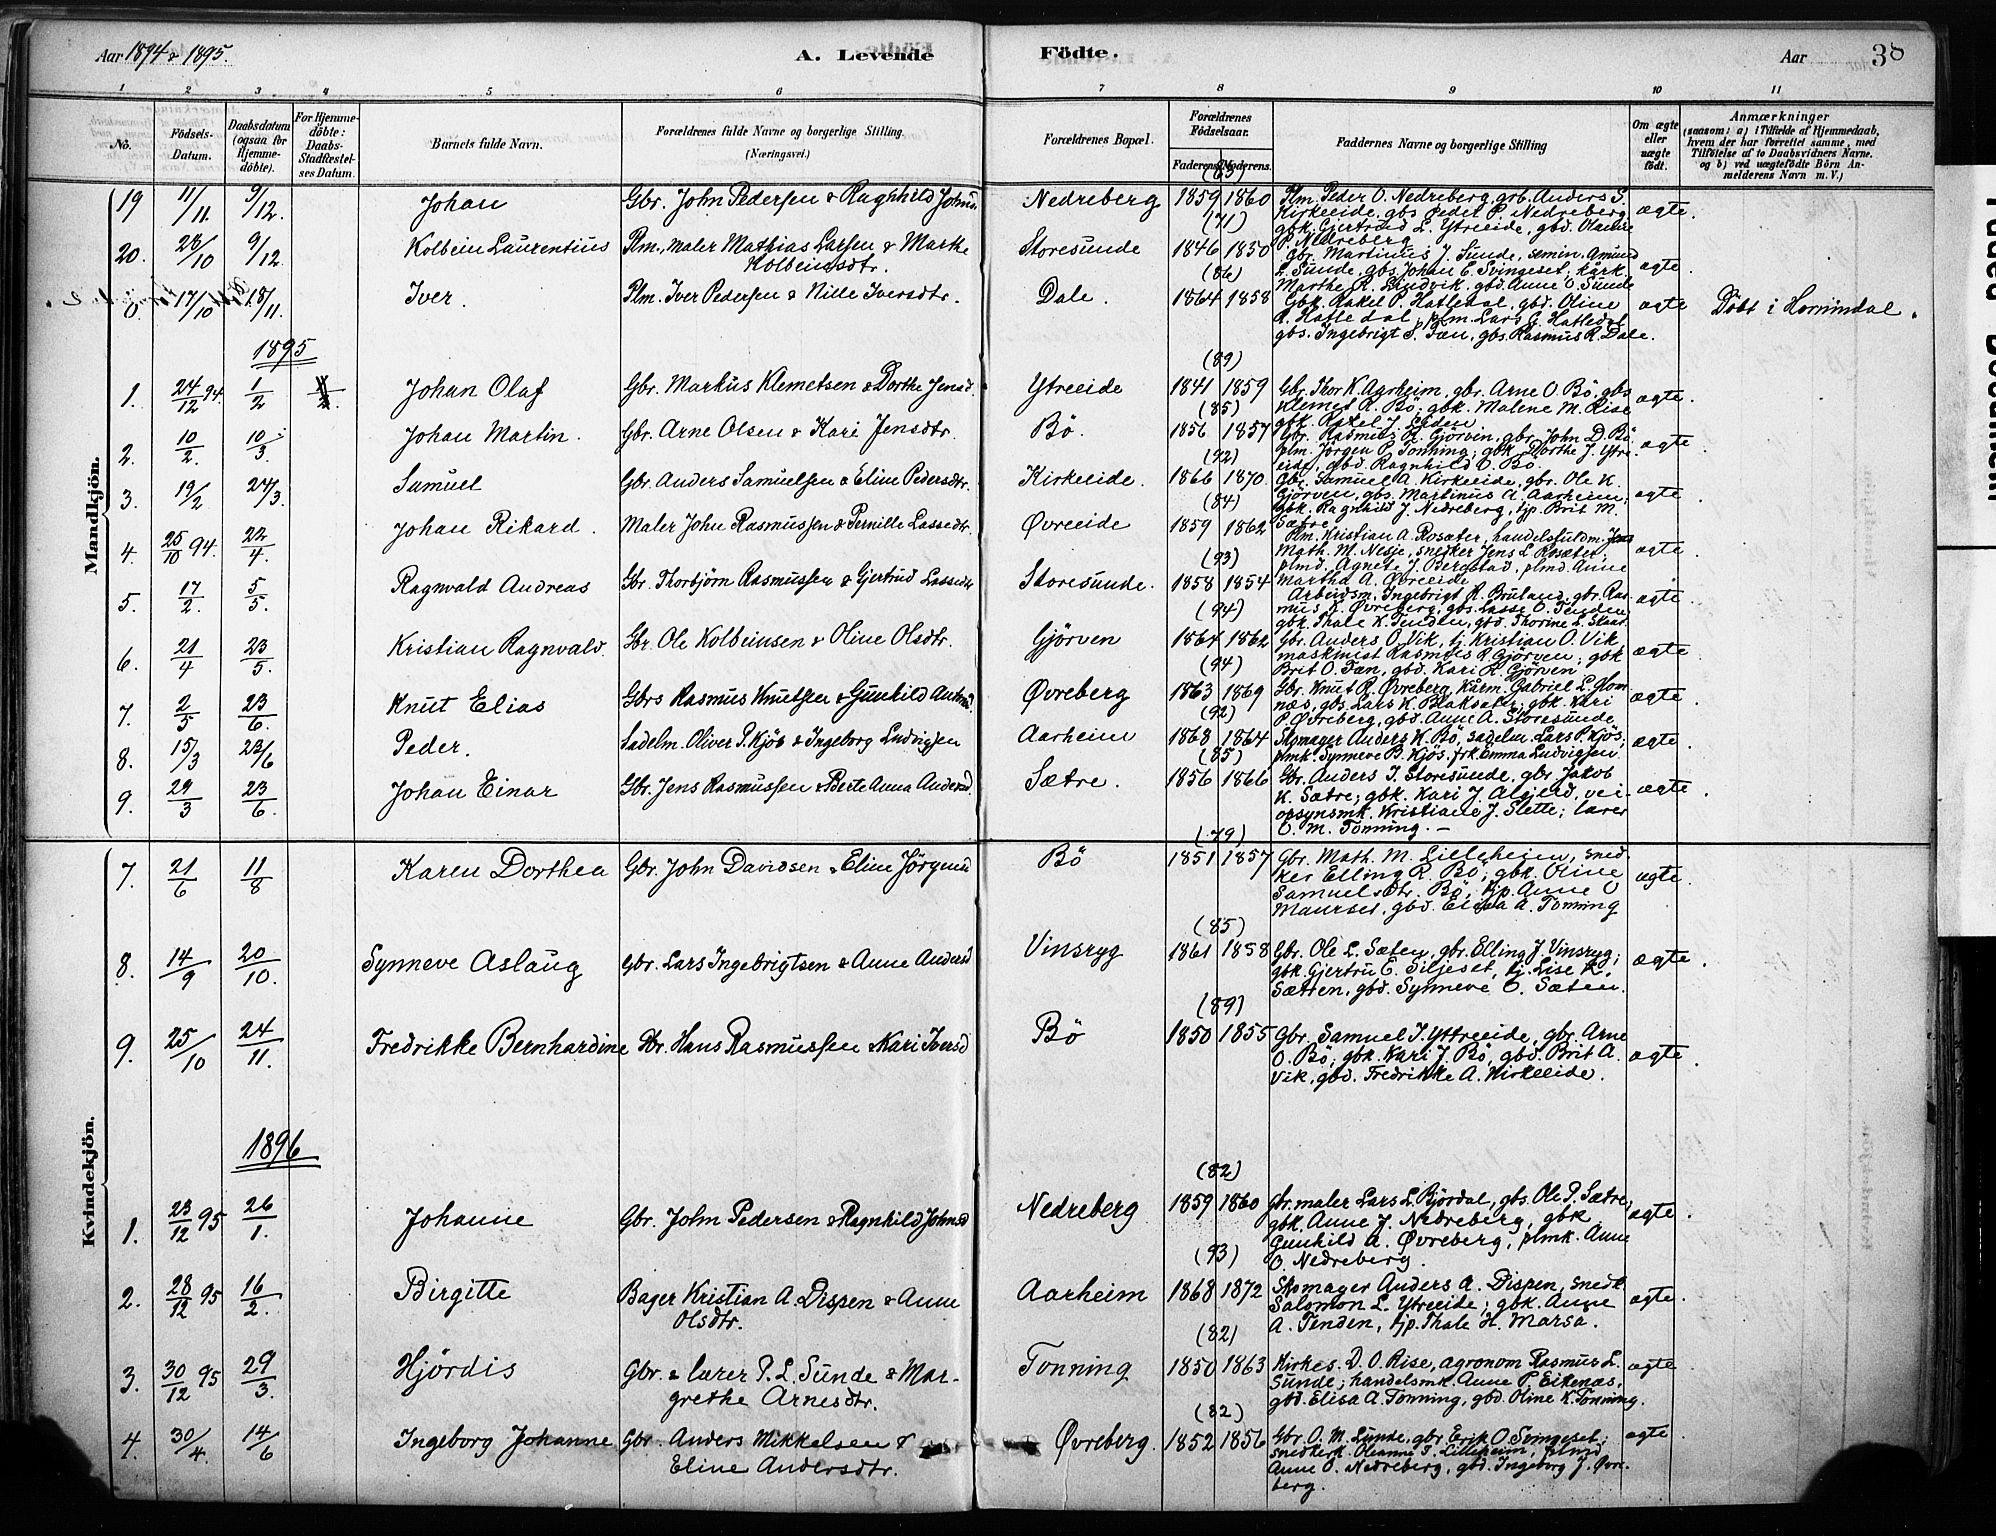 Aar 1894 & 1895.
A. Levende
Födte.
Aar
38
1 2 3 4 5 6 7 8 9 10 11
No.
Födsels-Datum.
Daabsdatum (ogsaa for Hjemme-döbte).
For Hjemme-döbte: Daabs-Stadfæstel-ses Datum.
Barnets fulde Navn.
Forældrenes fulde Navne og borgerlige Stilling. (Næringsvei.)
Forældrenes Bopæl.
Forældrenes Födselsaar.
Faderens. Moderens.
Faddernes Navne og borgerlige Stilling
Om ægte eller uægte födt.
Anmærkninger
(saasom: a) i Tilfælde af Hjemmedaab, hvem der har forrettet samme, med Tilföielse af to Daabsvidners Navne, og b) ved uægtefödte Börn An-melderens Navn m. V.)
Mandkjön.
19 11/11. 9/12. Johan Gbr. John Pedersen & Ragnhild Johnsd. Nedreberg 1859 1860 Plm. Peder O. Nedreberg, grb. Anders S. ægte.
Kirkeeide, gbs Peder P. Nedreberg
gbk. Gjertrud L. Ytreeide, gbd. Olaüse
P. Nedreberg
20. 28/10 9/12. Kolbein Laurentius Plm., maler Mathias Larsen & Marthe Kolbeinsdtr. Storesunde (71) 1846 1850 gbr. Martinus J. Sunde, semin. Amund ægte.
L. Sunde, gbs Johan E. Svingeset, kårk.
Marthe R. Sandvik, gbd. Anne O. Sunde
0. 17/10 18/11. Iver. Plm. Iver Pedersen & Nille Iversdtr. Dale. (86) 1864 1858 Gbk. Rakel P. Hatledal, gbd. Oline ægte Döbt i Hornindal.
R. Hatledal; plm. Lars G. Hatledal,
gbs. Ingebrigt S. Tæn, gbs. Rasmus R. Dale.
1895
1. 24/12 94 1/2 Johan Olaf Gbr. Markus Klemetsen & Dorthe Jensd. Ytreeide (89) 1841 1859 Gbr. Thor K. Aarheim, gbr. Arne O. Bö, gbs ægte.
Klemet R. Bö; gbk. Malene M. Rise
gbk. Rakel J. Leiden
2. 10/2. 10/3. Johan Martin. Gbr. Arne Olsen & Kari Jensdtr. Bö. (85) 1856 1857 Gbr. Rasmus R. Gjörvin, gbr. John D. Bö ægte.
plm. Jörgen P. Tonning; gbk. Dorthe J. Ytre-
eide, gbd. Ragnhild O. Bö.
3. 19/2 24/3. Samuel Gbr. Anders Samuelsen & Eline Pedersdtr. Kirkeeide. (92) 1866 1870. Gbr. Samuel A. Kirkeeide, gbr. Ole K. ægte.
Gjörven, gbs. Martinus A. Aarheim;
gbk. Ragnhild J. Nedreberg, tjp. Brit M.
Sætre
4. 25/10 94. 22/4. Johan Rikard. Maler John Rasmussen & Pernille Lassedtr. Øvreeide (84) 1859 1862 Plm. Kristian A. Rosæter, handelsfuldm. Jens ægte.
Math. M. Nesje, snejker Jens L. Rosæter,
plmd. Agnete J. Bergstad, plmd. Anne
Martha A. Øvreeide
5. 17/2. 5/5. Ragnvald Andreas Gbr. Thorbjörn Rasmussen & Gjertrud Lassedtr Storesunde. (93) 1858 1854 Arbeidsm. Ingebrigt R. Bruland, gbr. Ras- ægte.
mus K. Øvreberg, gbs. Lasse O. Tenden,
gbk. Thale K. Tenden, gbd. Thorine L. Skaar.
6. 21/4 23/5. Kristian Ragnvald. Gbr. Ole Kolbeinsen & Oline Olsdtr. Gjörven (94) 1864 1862 Gbr. Anders O. Vik, tj. Kristian O. Vik, ægte.
maskinist Rasmus R. Gjörven; gbk
Brit O. Tæn, gbd. Kari R. Gjörven
7. 2/5 23/6. Knut Elias Gbrs Rasmus Knutsen & Gunhild Antonsd. Øvreberg (94) 1863 1869 Gbr. Knut R. Øvreberg, Kårm. Gabriel L. Glom- ægte.
næs, gbs. Lars K. Blaksæter; gbk. Kari
P. Øvreberg, gbd. Anne A. Storesunde
8. 15/3 23/6 Peder. Sadelm. Oliver P. Kjös & Ingeborg Ludvigsen Aarheim (92) 1868 1864 Skomager Anders K. Bö, sadelm. Lars P. Kjös; ægte.
plmk. Synneve B. Kjös, frk. Emma Ludvigsen.
9. 29/3 23/6. Johan Einar Gbr. Jens Rasmussen & Berte Anna Andersd. Sætre. (85) 1856 1866 Gbr. Anders J. Storesunde, gbr. Jakob ægte.
K. Sætre; gbk. Kari J. Alsjerd, vei-
opsynsmk. Kristiane J. Slette; lærer
O. M. Tonning. –
Kvindekjön.
7. 21/6 11/8 Karen Dorthea Gbr. John Davidsen & Eline Jörgensd Bö (79) 1851 1857 Gbr. Math. M. Lilleheim, sned- ægte.
ker Elling R. Bö; gbk. Oline
Samuelsdtr. Bö, tjp. Anne O
Maurset, gbd. Elisa A. Tonning
8. 14/9 20/10. Synneve Aslaug Gbr. Lars Ingebrigtsen & Anne Andersd Vinsryg (85) 1861 1858 Gbr. Ole L. Sæten, gbr. Elling J. Vinsryg; ægte.
gbk. Gjertru E. Siljeset, tj. Lise K.
Sætren, gbd. Synneve O. Sæten.
9. 25/10 24/11. Fredrikke Bernhardine Gbr. Hans Rasmussen & Kari Iversd Bö (89) 1850 1855 Gbr. Samuel J. Yttreeide, gbr. Arne ægte.
O. Bö; gbk. Kari J. Bö, gbd. Brit A.
Vik, gbd. Fredrikke A. Kirkeeide.
1896
1. 23/12 95 26/1. Johanne Gbr. John Pedersen & Ragnhild Johnsd Nedreberg (82) 1859 1860 Gbr. maler Lars L. Björdal, gbs. Ole P. Sætre; ægte.
gbk. Anne J. Nedreberg, gbk.
Gunhild A. Øvreberg, plmk. Anne
O. Nedreberg.
2. 28/12 95 16/2. Birgitte Bager Kristian A. Dispen & Anne Olsdtr. Aarheim (93) 1868 1872 Skomager Anders A. Dispen, snedk. ægte.
Salomon L. Ytreeide; gbk. Anne
A. Tenden, tjp. Thale H. Marsa.
3. 30/12 95 29/3. Hjördis Gbr. & lærer P. L. Sunde & Mar-grethe Arnesdtr. Tonning (82) 1850 1863 Kirkes. D. O. Rise, agronom Rasmus L. ægte.
Sunde; handelsmk. Anne P. Eikenæs,
gbd. Elisa A. Tonning, gbd. Oline K. Tonning.
4. 30/4. 14/6 Ingeborg Johanne Gbr. Anders Mikkelsen & Eline Andersdtr. Øvreberg. (82) 1852 1856 Gbr. O. M. Lunde, gbr Erik O. Svingeset; ægte.
snedkerk. Oleanne J. Lilleheim, plmd.
Anne O. Nedreberg, gbd. Ingeborg J. Øvre-
berg.